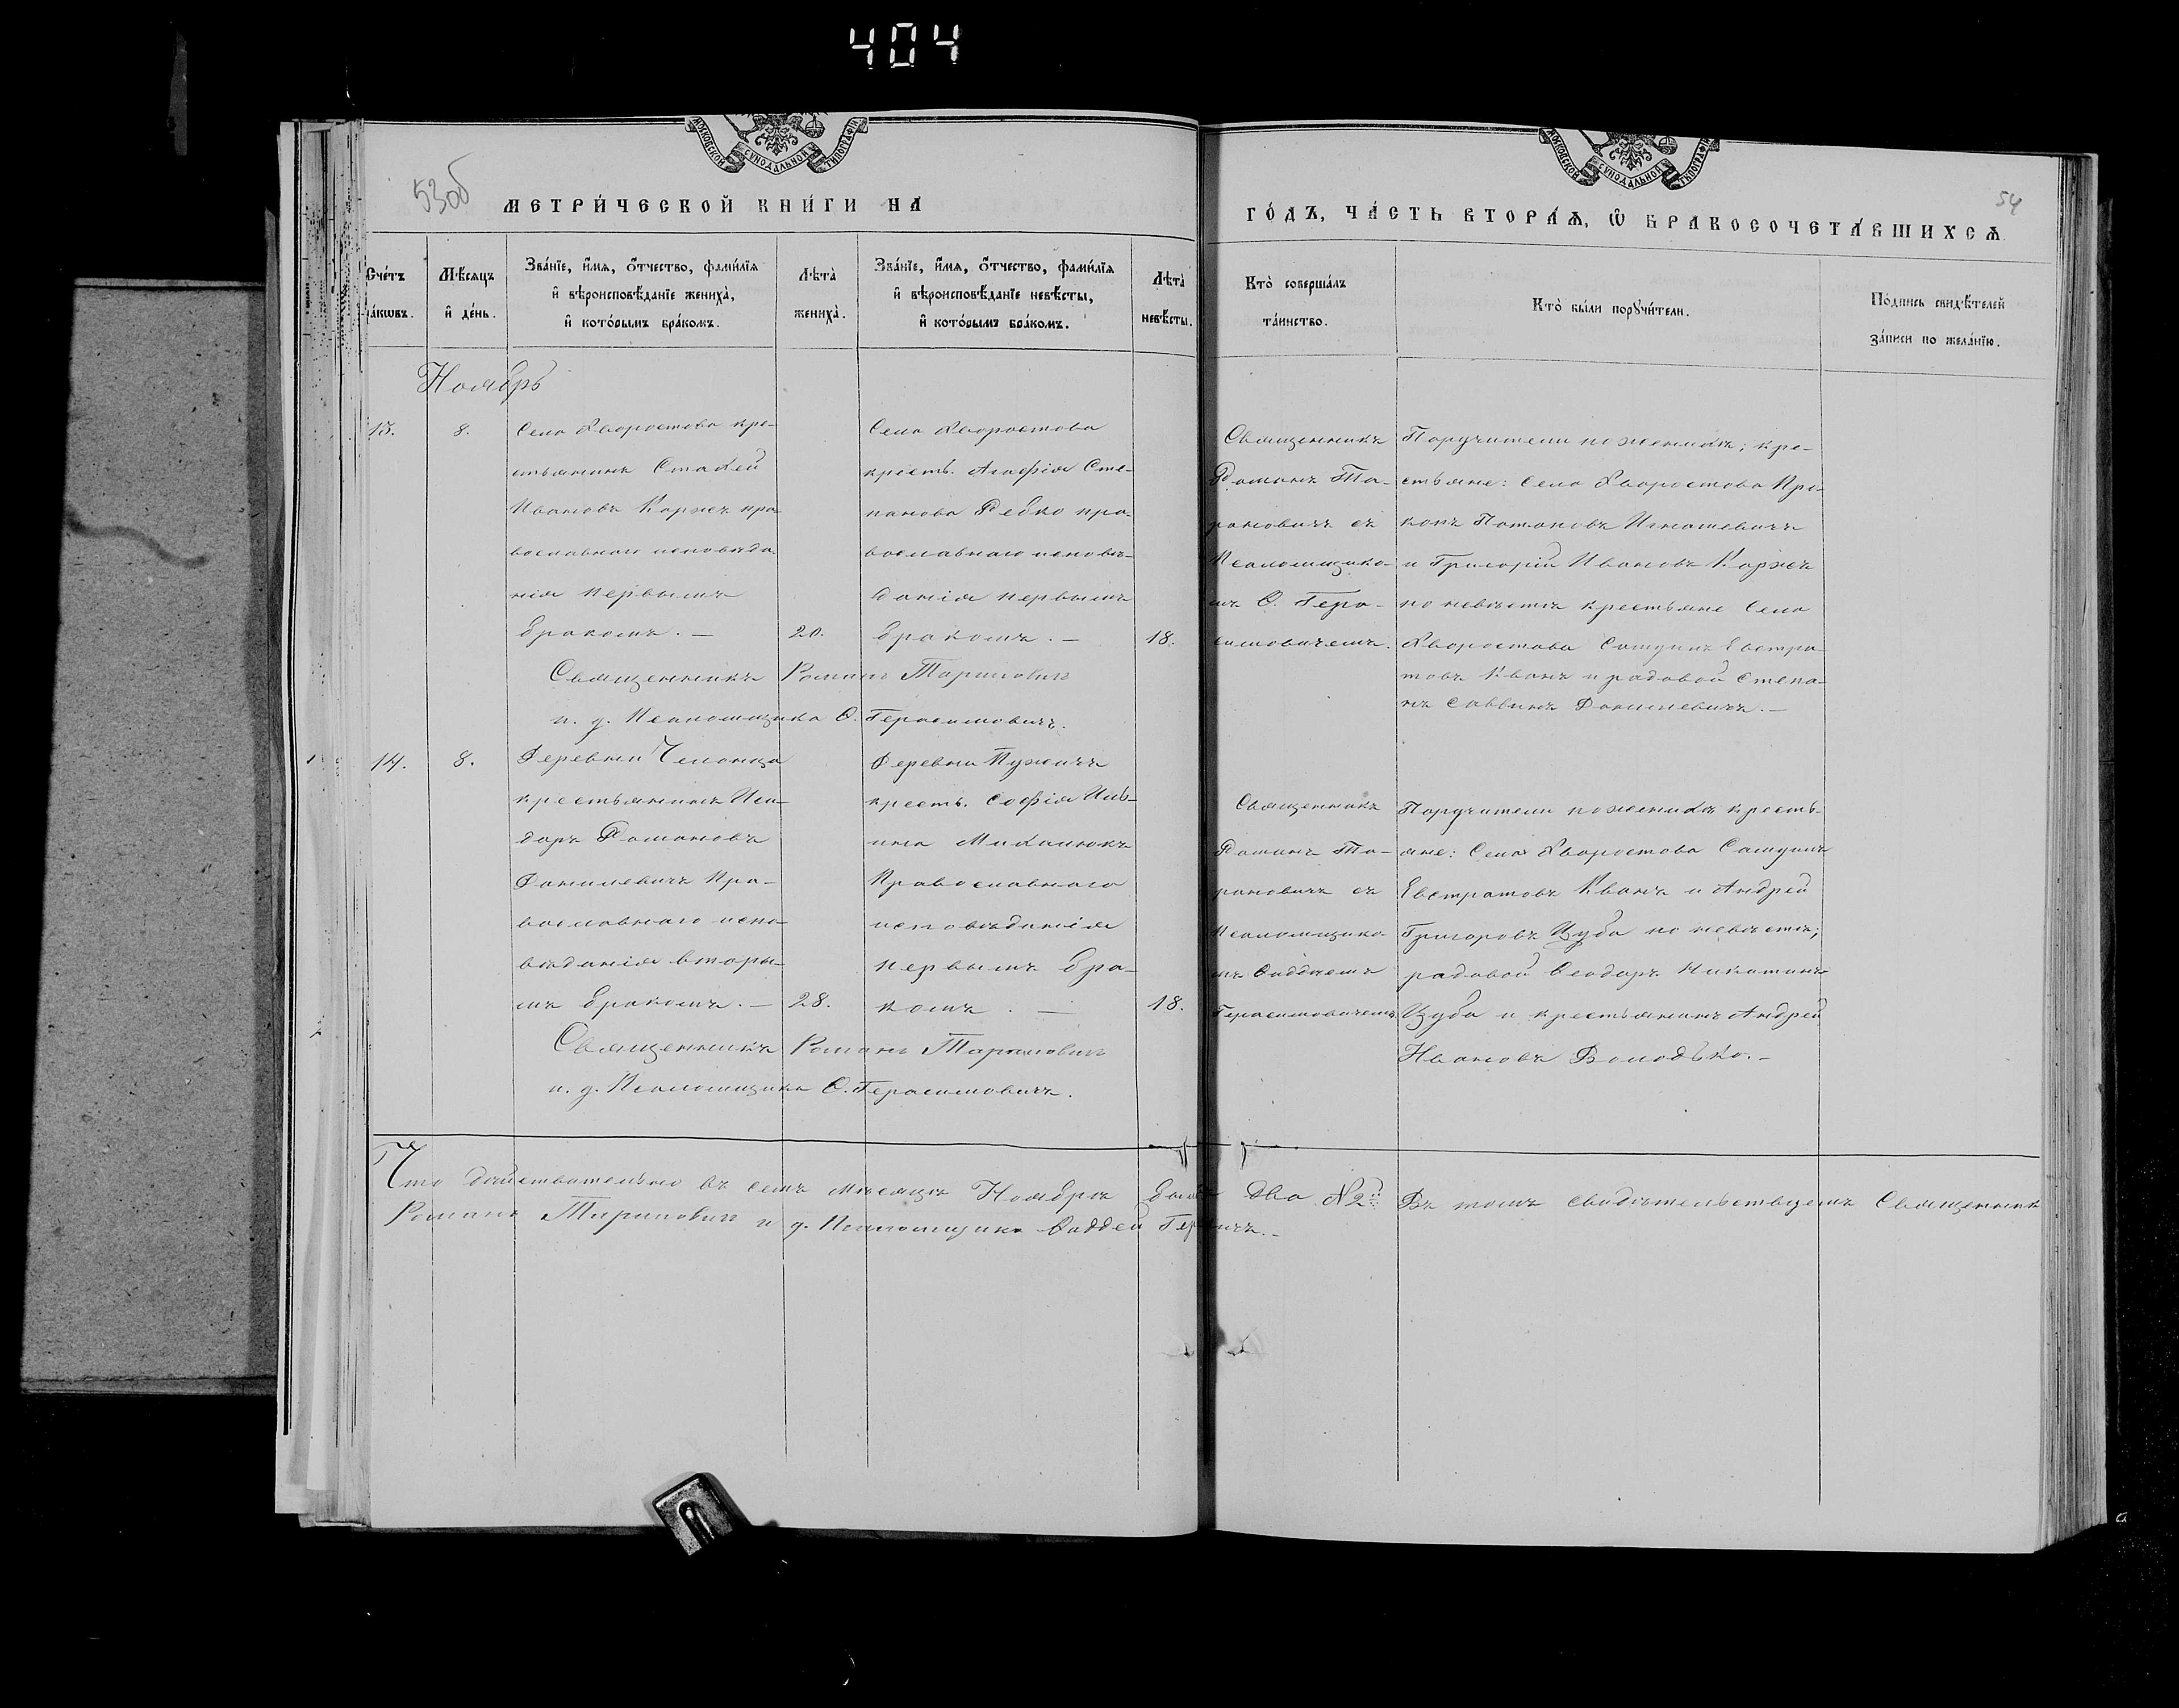 404
МОСКОВСКОЙ СУНОДАЛЬНОЙ ТИПОГРАФІИ
МОСКОВСКОЙ СУНОДАЛЬНОЙ ТИПОГРАФІИ
53об
54
МЕТРИ́ЧЕСКОЙ КНИ́ГИ НА
ГО́ДЪ, ЧА́СТЬ ВТОРА́Ѧ, Ѡ БРАКОСОЧЕТА́ВШИХСѦ
Сче́тъ
ра́кѡвъ.
Мѣ́сяцъ
и де́нь.
Зва́нїе, и́мя, о́тчество, фами́лїя
и вѣроисповѣ́данїе жениха̀,
и кото́рымъ бра́комъ.
Лѣта̀
жениха̀.
Зва́нїе, и́мя, о́тчество, фами́лїя
и вѣроисповѣ́данїе невѣ́сты,
и кото́рымъ бра́комъ.
Лѣта̀
невѣ́сты.
Кто̀ соверша́лъ
та́инство.
Кто̀ бы́ли порꙋчи́тели.
По́дпись свидѣ́телей
за́писи по жела́нїю.
Ноябрь
13.
8.
Села Хворостова кре-
стьянинъ Стахей
Ивановъ Коржъ пра
вославнаго исповѣда
нія первымъ
бракомъ. —
20.
Села Хворостова
крестъ. Агафія Сте-
панова Редко пра-
вославнаго исповѣ-
данія первымъ
бракомъ. —
18.
Священникъ
Романъ Та-
рановичъ съ
Псаломщико-
мъ Ѳ. Гера-
симовичемъ.
Поручители по женихѣ; кре-
стьяне: Села Хворостова Про-
копъ Потаповъ Игнатевичъ
и Григорій Ивановъ Коржъ
по невѣстѣ крестьяне Села
Хворостова Самуилъ Евстра
товъ Квачъ и рядовой Степа-
нъ Саввинъ Данилевичъ. —
Священникъ Романъ Тарановичъ
и. д. Псаломщика Ѳ. Герасимовичъ.
14.
8.
Деревни Челонца
крестьянинъ Иси-
доръ Романовъ
Данилевичъ Пра-
вославнаго испо-
вѣданія вторы-
мъ бракомъ. —
28.
Деревни Пужичъ
крестъ. Софія Иль-
ина Михалюкъ
Православнаго
исповѣданія
первымъ бра-
комъ. —
18.
Священникъ
Романъ Та-
рановичъ съ
Псаломщико
мъ Ѳаддеемъ
Герасимовичемъ
Поручители по женихѣ кресть-
яне: Села Хворостова Самуилъ
Евстратовъ Квачъ и Андрей
Григоровъ Цуба по невѣстѣ;
рядовой Ѳеодоръ Никитинъ
Цуба и крестьянинъ Андрей
Ивановъ Володько. —
Священникъ Романъ Тарановичъ
и. д. Псаломщика Ѳ. Герасимовичъ.
Что дѣйствительно въ семъ мѣсяцѣ Ноябрѣ два №2. Въ томъ свидѣтельствуемъ Священникъ
Романъ Тарановичъ и д. Псаломщика Ѳаддей